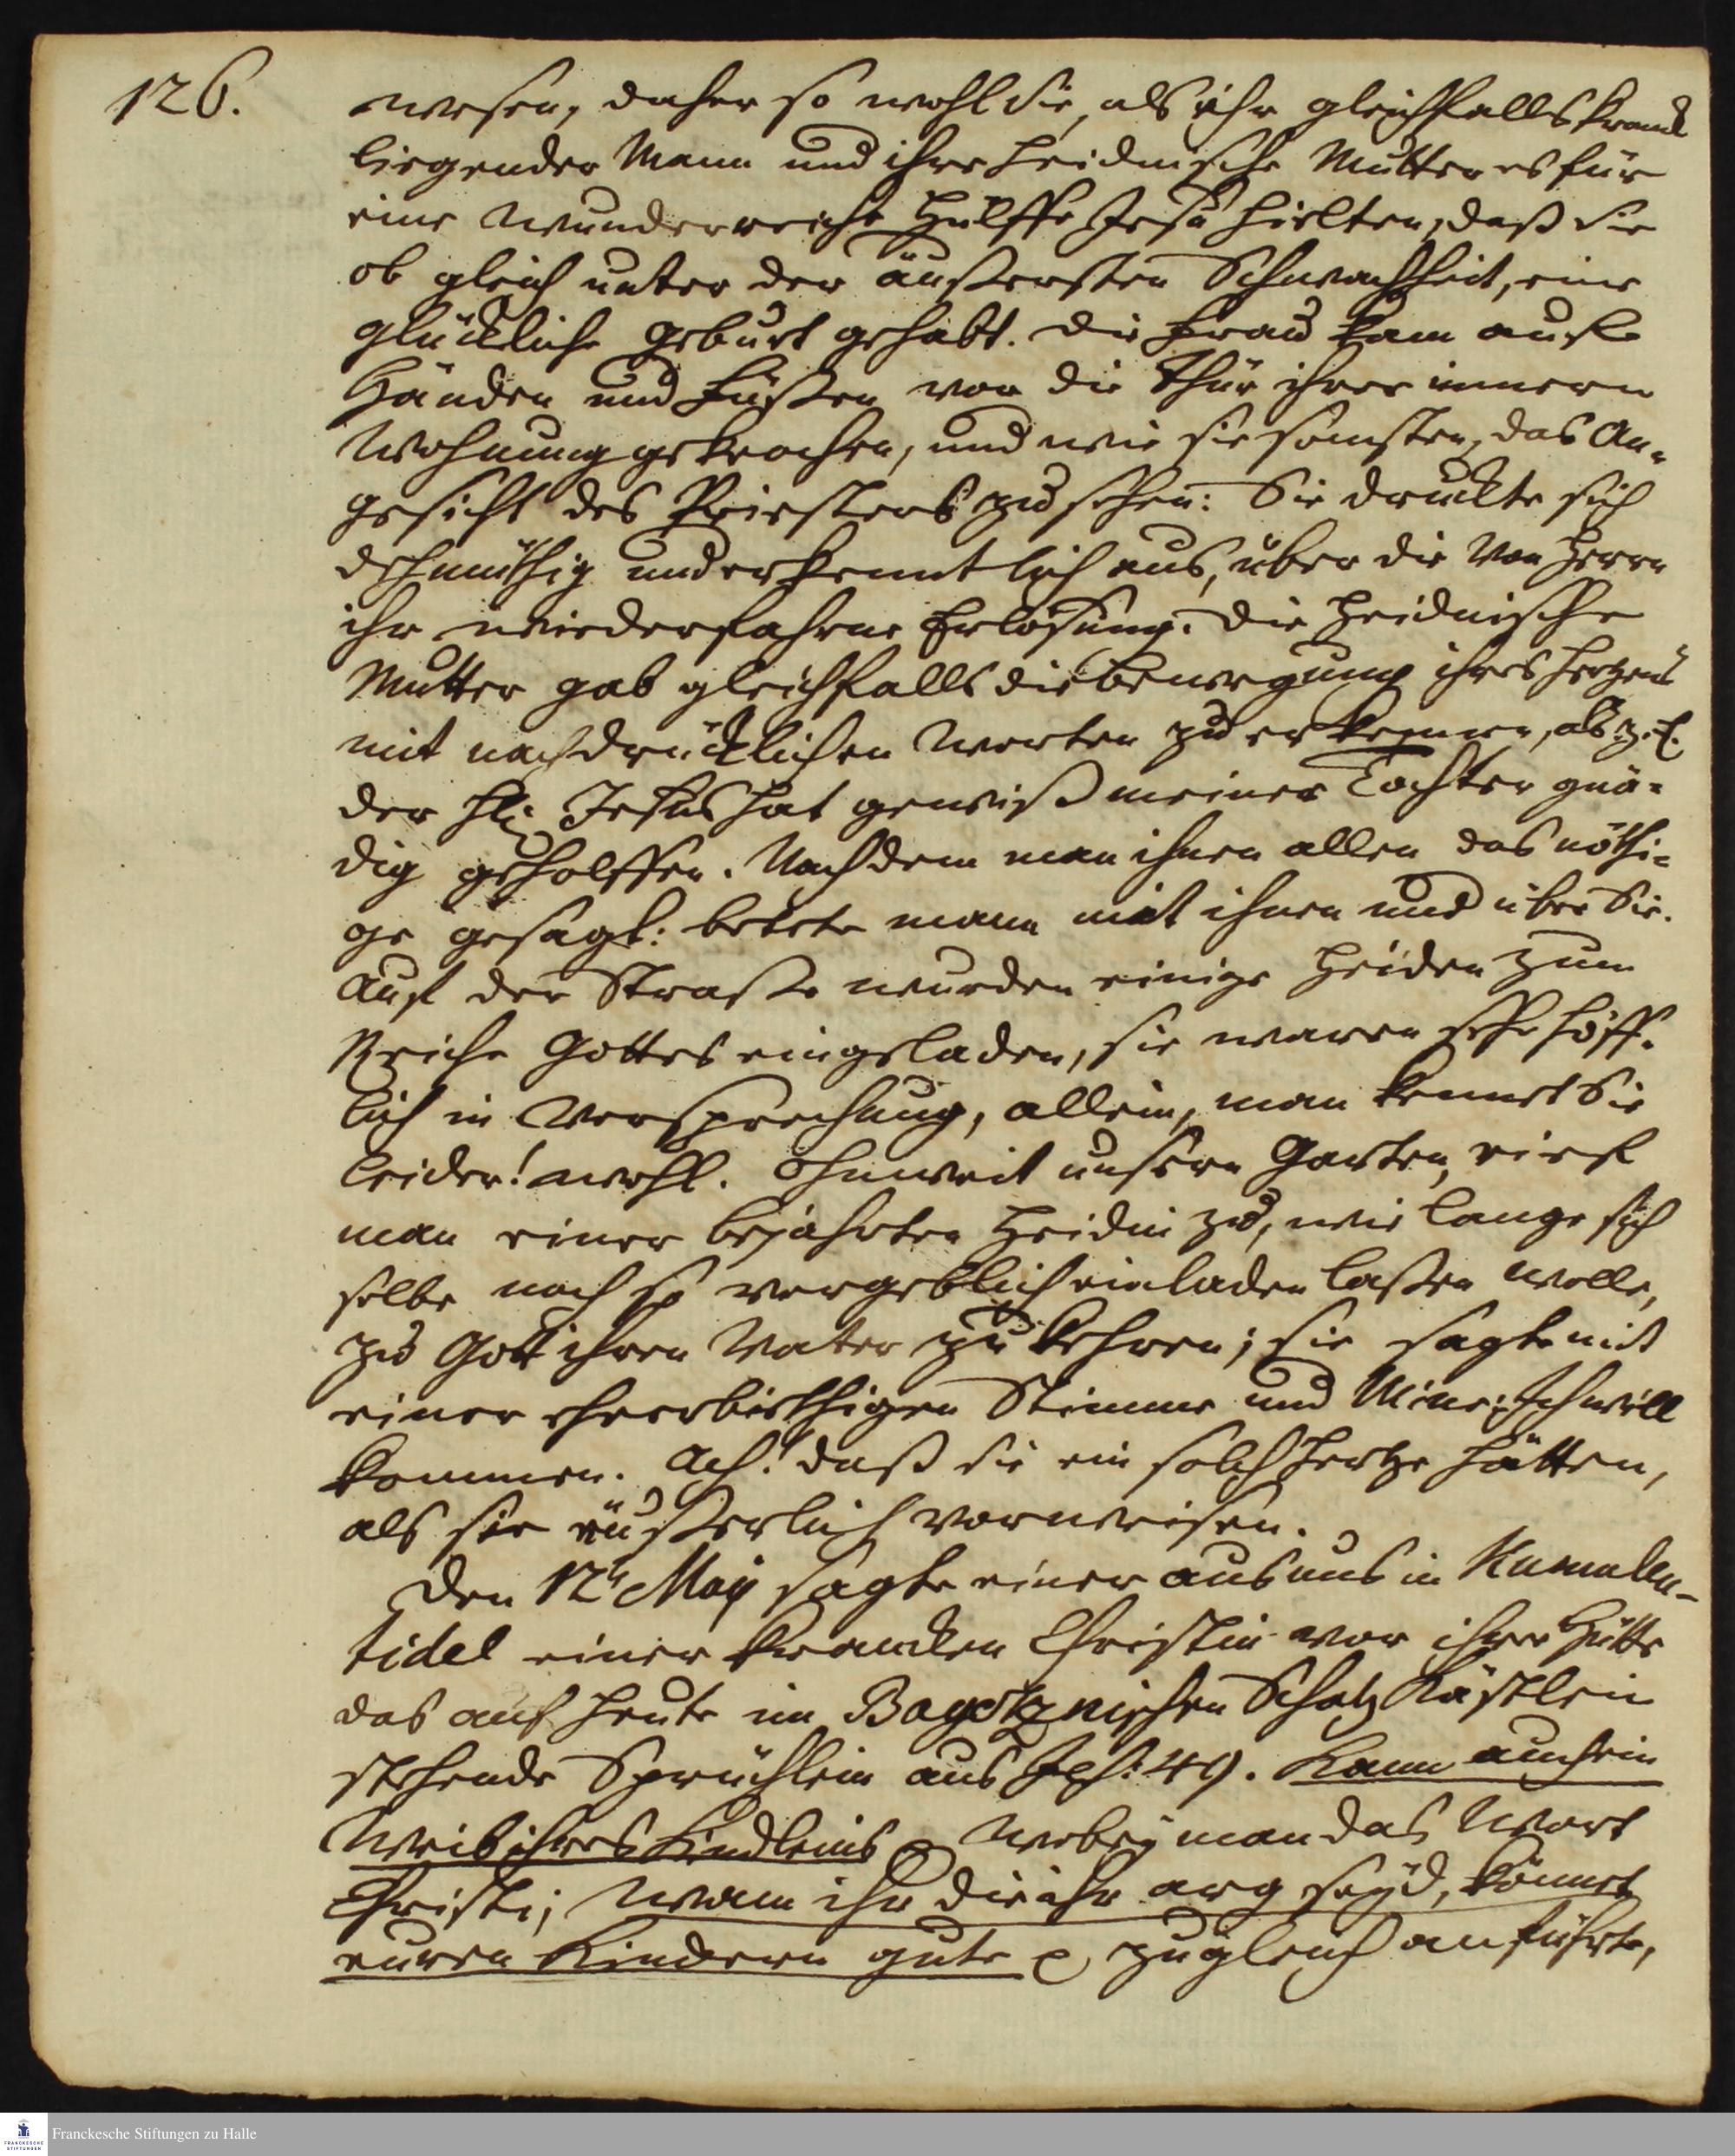 126.
wesen, daher so wohl Sie, als ihr gleichfalls kranck
liegender Mann und ihre heidnische Mutter es für
eine wunderreiche Hülffe Jesu hielten, daß Sie
ob gleich unter der äußersten Schwachheit, eine
glückliche Geburt gehabt. Die Frau kam auf
Händen und Füßen vor die Thür ihrer innern
Wohnung gekrochen, und wie sie sonsten, das An-
gesicht des Priesters zu sehen: Sie druckte sich
dehmüthig und erkenntlich aus, über die von Herrn
ihr wiederfahrne Erlösung. Die Heidnische
Mutter gab gleichfalls die bewegung ihres Hertzens
mit nachdrücklichen Worten zu erkennen, als z. E.
der HE. Jesus hat gewiß meiner Tochter gnä-
dig geholffen. Nachdem man ihnen allen das nöthi-
ge gesagt: betete mann mit ihnen und über Sie.
Auf der Straße wurden einige Heiden zum
Reiche Gottes eingeladen, sie waren sehr höff-
lich in Versprechung, allein, man kennet Sie
leider! wohl. Ohnweit unsern Garten, rief
man einer bejahrten Heidin zu, wie lange sich
selbe noch so vergeblich einladen laßen wolle,
zu Gott ihren Vater zu kehren; sie sagte mit
einer ehrerbiethigen Stimme und Mine: Ich will
kommen. Ach! daß sie ein solch Hertze hätten,
als sie äußerlich vorweisen.
Den 12t May sagte einer aus uns in Kumulen-
tidel einer krancken Christin vor ihrer Hütte
das auf heute im Bogatznischen Schatz Kästlein
stehende Sprüchlein aus Jes: 49. Kann auch ein
Weib ihres Kindleins e wobey man das Wort
Christi; Wann ihr die ihr arg seyd, könnet
euren Kindern gute e zugleich anführte,
Franckesche Stiftungen zu Halle